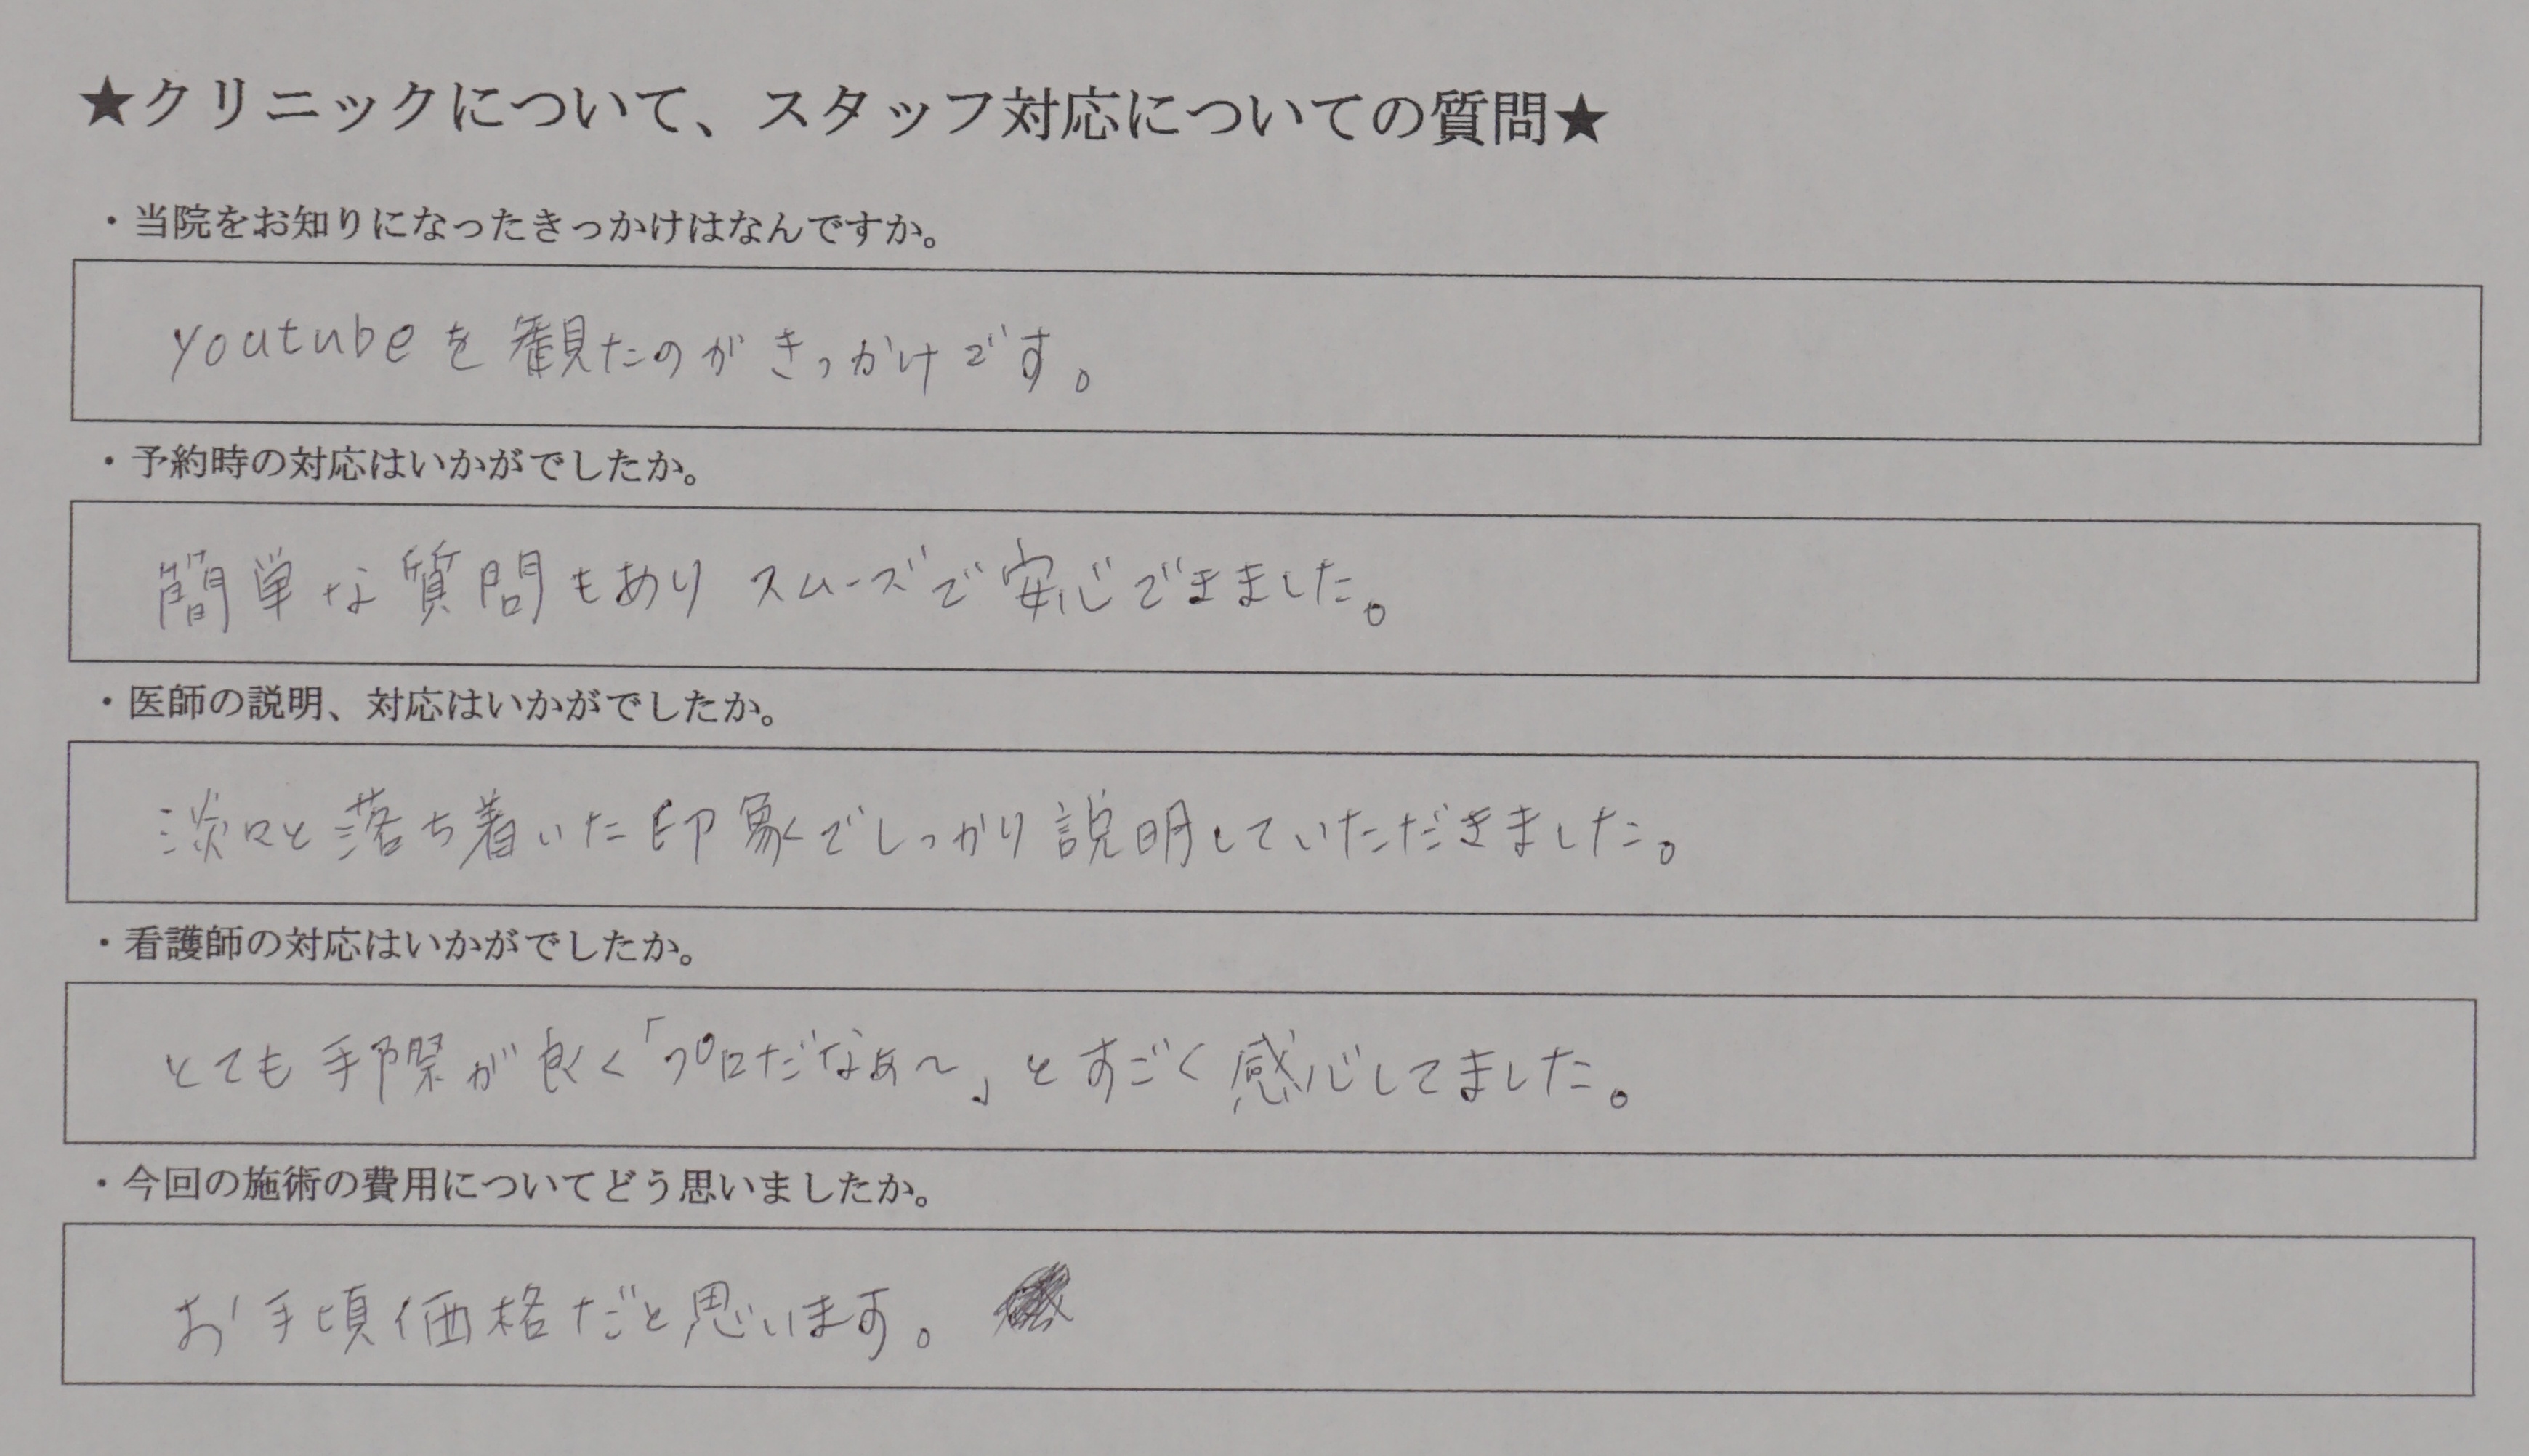 ★クリニックについて、スタッフ対応についての質問★
・当院をお知りになったきっかけはなんですか。
youtubeを観たのがきっかけです。
・予約時の対応はいかがでしたか。
簡単な質問もありスムーズで安心できました。
・医師の説明、対応はいかがでしたか。
淡々と落ち着いた印象でしっかり説明していただきました。
・看護師の対応はいかがでしたか。
とても手際が良く「プロだなぁ〜」とすごく感心してました。
・今回の施術の費用についてどう思いましたか。
お手頃価格だと思います。